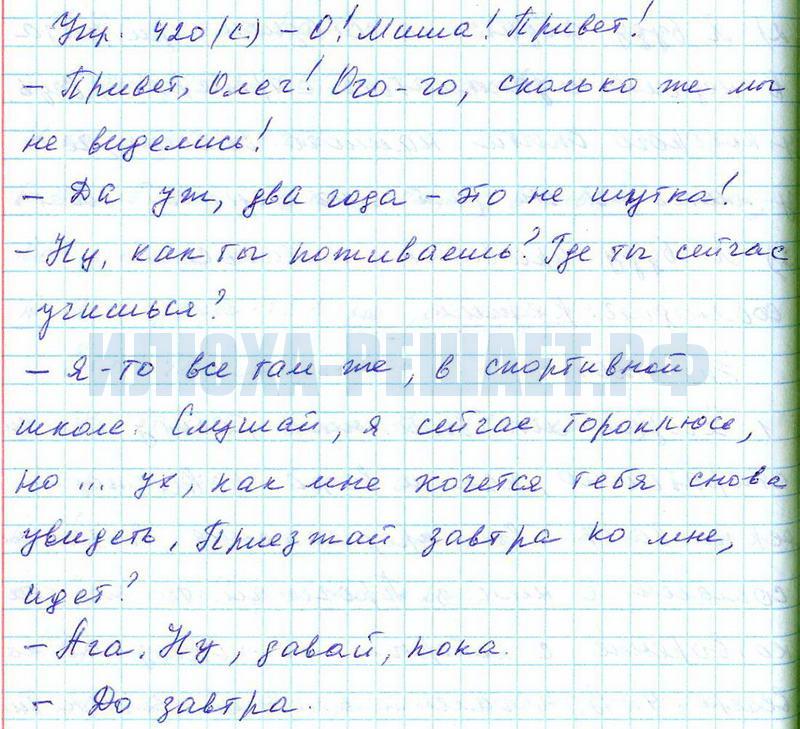 Упр. 420 (с.) – О! Миша! Привет!
– Привет, Олег! Ого-го, сколько же мы
не виделись!
– Да уж, два года – это не шутка!
– Ну, как ты поживаешь? Где ты сейчас
учишься?
ИЛЮХА-РЕШАЕТ.РФ
– Я-то все там же, в спортивной
школе. Слушай, я сейчас тороплюсь,
но ... ух, как мне хочется тебя снова
увидеть. Приезжай завтра ко мне,
идет?
– Ага. Ну, давай, пока.
– До завтра.